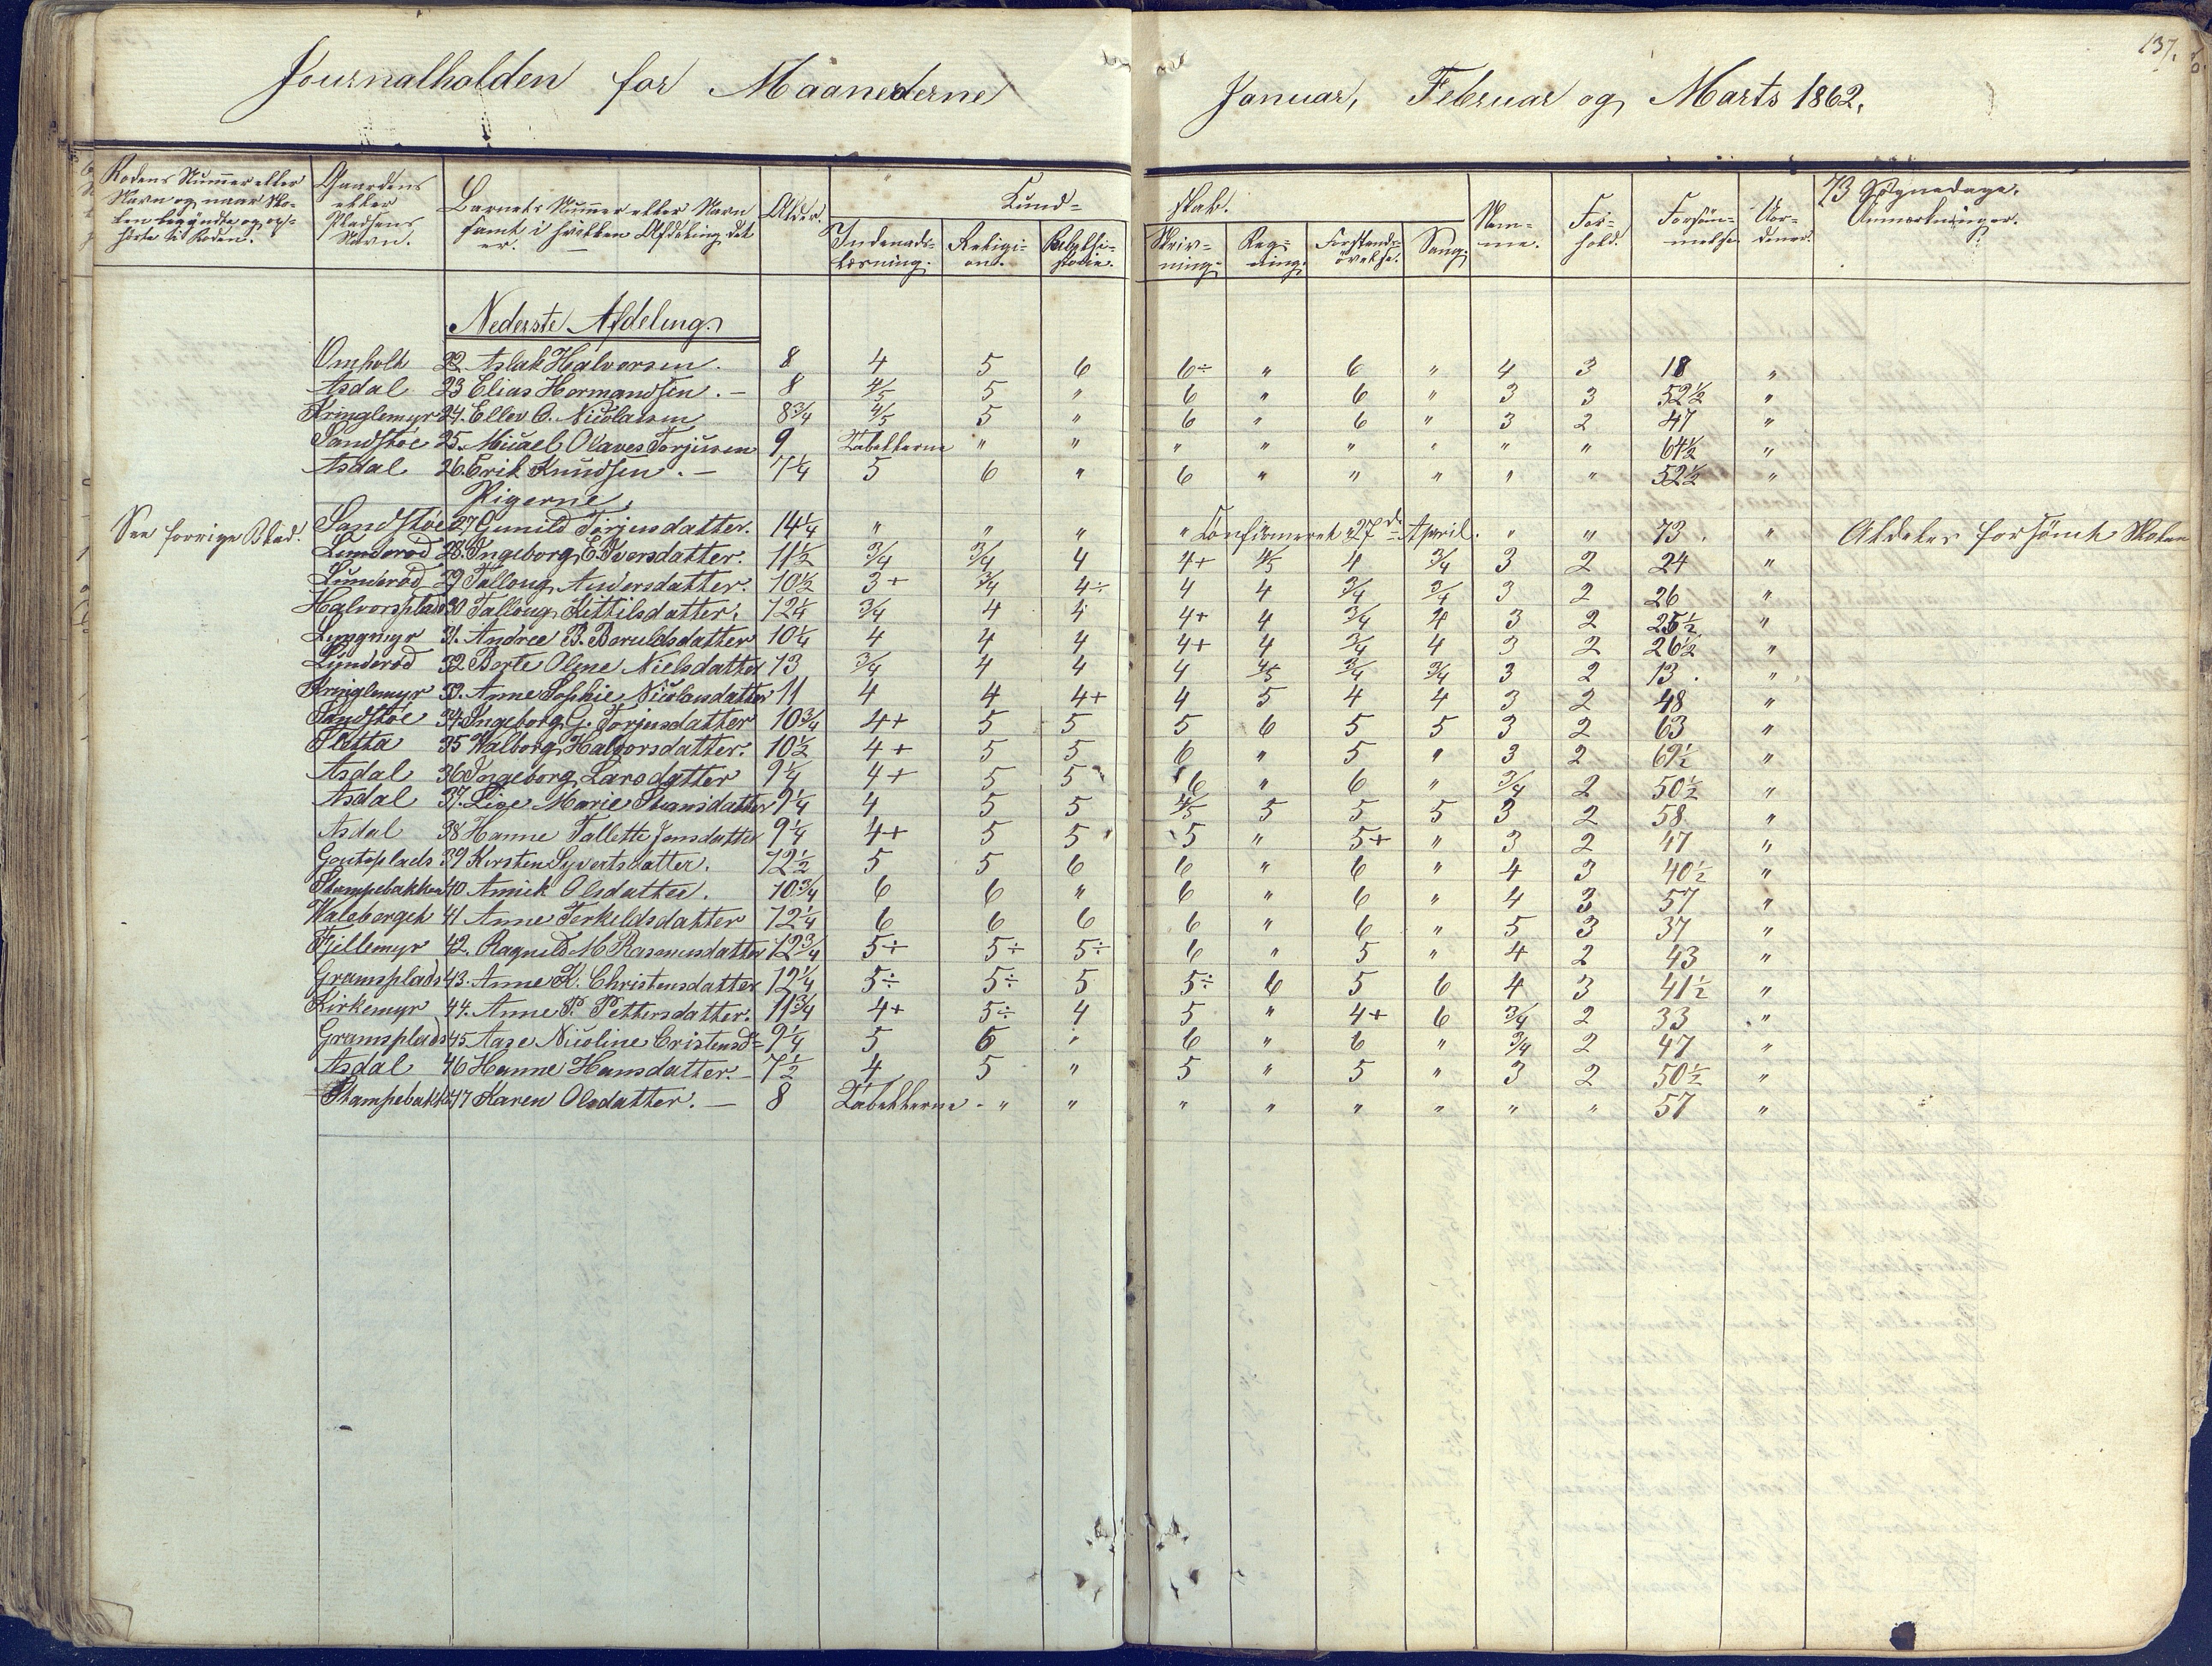 137.
Journalholden for Maanederne Januar, Februar og Marts 1862.
Rodens Nummer eller Navn og naar Skolen begyndte og ophørte til Roden.
Gaardens eller Pladsens Navn.
Barnets Nummer eller Navn samt i hvilken Afdeling det er.
Alder.
Kundskab.
Indenadslæsning.
Religion.
Bibelhistorie.
Skrivning.
Regning.
Forstandsøvelse.
Sang.
Nemme.
Forhold.
Forsømmelse
73 Søgnedage.
Anmærkninger.
Nederste Afdeling.
Omholt 22. Aslak Halvorsen. 8 4 5 6 6÷ " 6 " 4 3 18 "
Asdal 23 Elias Hermandsen. – 8 4/5 5 " 6 " 6 " 3 3 52½ "
Kringlemyr 24. Ellev O. Nicolaisen 8¾ 4/5 5 " 6 " 6 " 3 2 47 "
Sandstøe 25. Micael Olaves Torjusen 9 Tabellerne " " " " " " " " 64½ "
Asdal 26. Erik Knudsen. – 7¼ 5 6 " 6 " " " " " 52½ "
Pigerne
See forrige Blad. Sandstøe 27 Gunild Torjusdatter. 14¼ " " " " Confirmeret 27de April. " " 73. " Aldeles forsømt Skolen
Lunderød 28. Ingeborg E. Iversdatter. 11½ 3/4 3/4 4 4+ 4/5 4 3/4 3 2 24 "
Lunderød 29 Talloug Andersdatter. 10½ 3+ 3/4 4÷ 4 4 3/4 3/4 3 2 26 "
Halvorsplads 30 Talloug Kittilsdatter. 12¼ 3/4 4 4 4+ 4 3/4 4 3 2 25½ "
Lyngmyr 31. Andree B. Beruldsdatter 10¼ 4 4 4 4+ 4 3/4 4 3 2 26½ "
Lunderød 32 Berte Oline Nielsdatter 13 3/4 4 4 4 4/5 3/4 3/4 3 2 13. "
Kringlemyr 33. Anne Sophie Nicolaisdatter 11 4 4 4+ 4 5 4 4 3 2 48 "
Sandstøe 34. Ingeborg G. Torjusdatter 10¾ 4+ 5 5 5 6 5 5 3 2 63 "
Sletta 35 Walborg Halvorsdatter. 10½ 4+ 5 5 6 " 5 " 3 2 69½ "
Asdal 36 Ingeborg Larsdatter 9¼ 4+ 5 5 6 " 6 " 3/4 2 50½ "
Asdal 37. Lise Marie Hansdatter 9¼ 4 5 5 4/5 5 5 5 3 2 58 "
Asdal 38 Hanne Tallette Jensdatter 9¼ 4+ 5 5 5 " 5+ " 3 2 47 "
Goutsplads 39 Kirsten Syvertsdatter. 12½ 5 5 6 6 " 6 " 4 3 40½ "
Stampebakken 40. Annick Olsdatter. 10¾ 6 6 " 6 " 6 " 4 3 57 "
Waleberget 41 Anne Terkeldsdatter 12¼ 6 6 6 6 " 6 " 5 3 37 "
Fjillemyr 42. Ragnild M Rasmusdatter 12¾ 5÷ 5÷ 5÷ 6 " 5 " 4 2 43 "
Gramsplads 43. Anne K. Christensdatter 12¼ 5÷ 5÷ 5 5÷ 6 5 6 4 3 41½ "
Kirkemyr 44. Anne P. Pettersdatter. 11¾ 4+ 5÷ 4 5 " 4+ 6 3/4 2 33 "
Gramsplads 45 Aase Nicoline Cristensd= 9¼ 5 6 " 6 " 6 " 3/4 2 47 "
Asdal 46 Hanne Hansdatter. – 7½ 4 5 " 5 " 5 " 3 2 50½ "
Stampebakk. 47 Karen Olsdatter. – 8 Tabellerne - " " " " " " " " 57 "